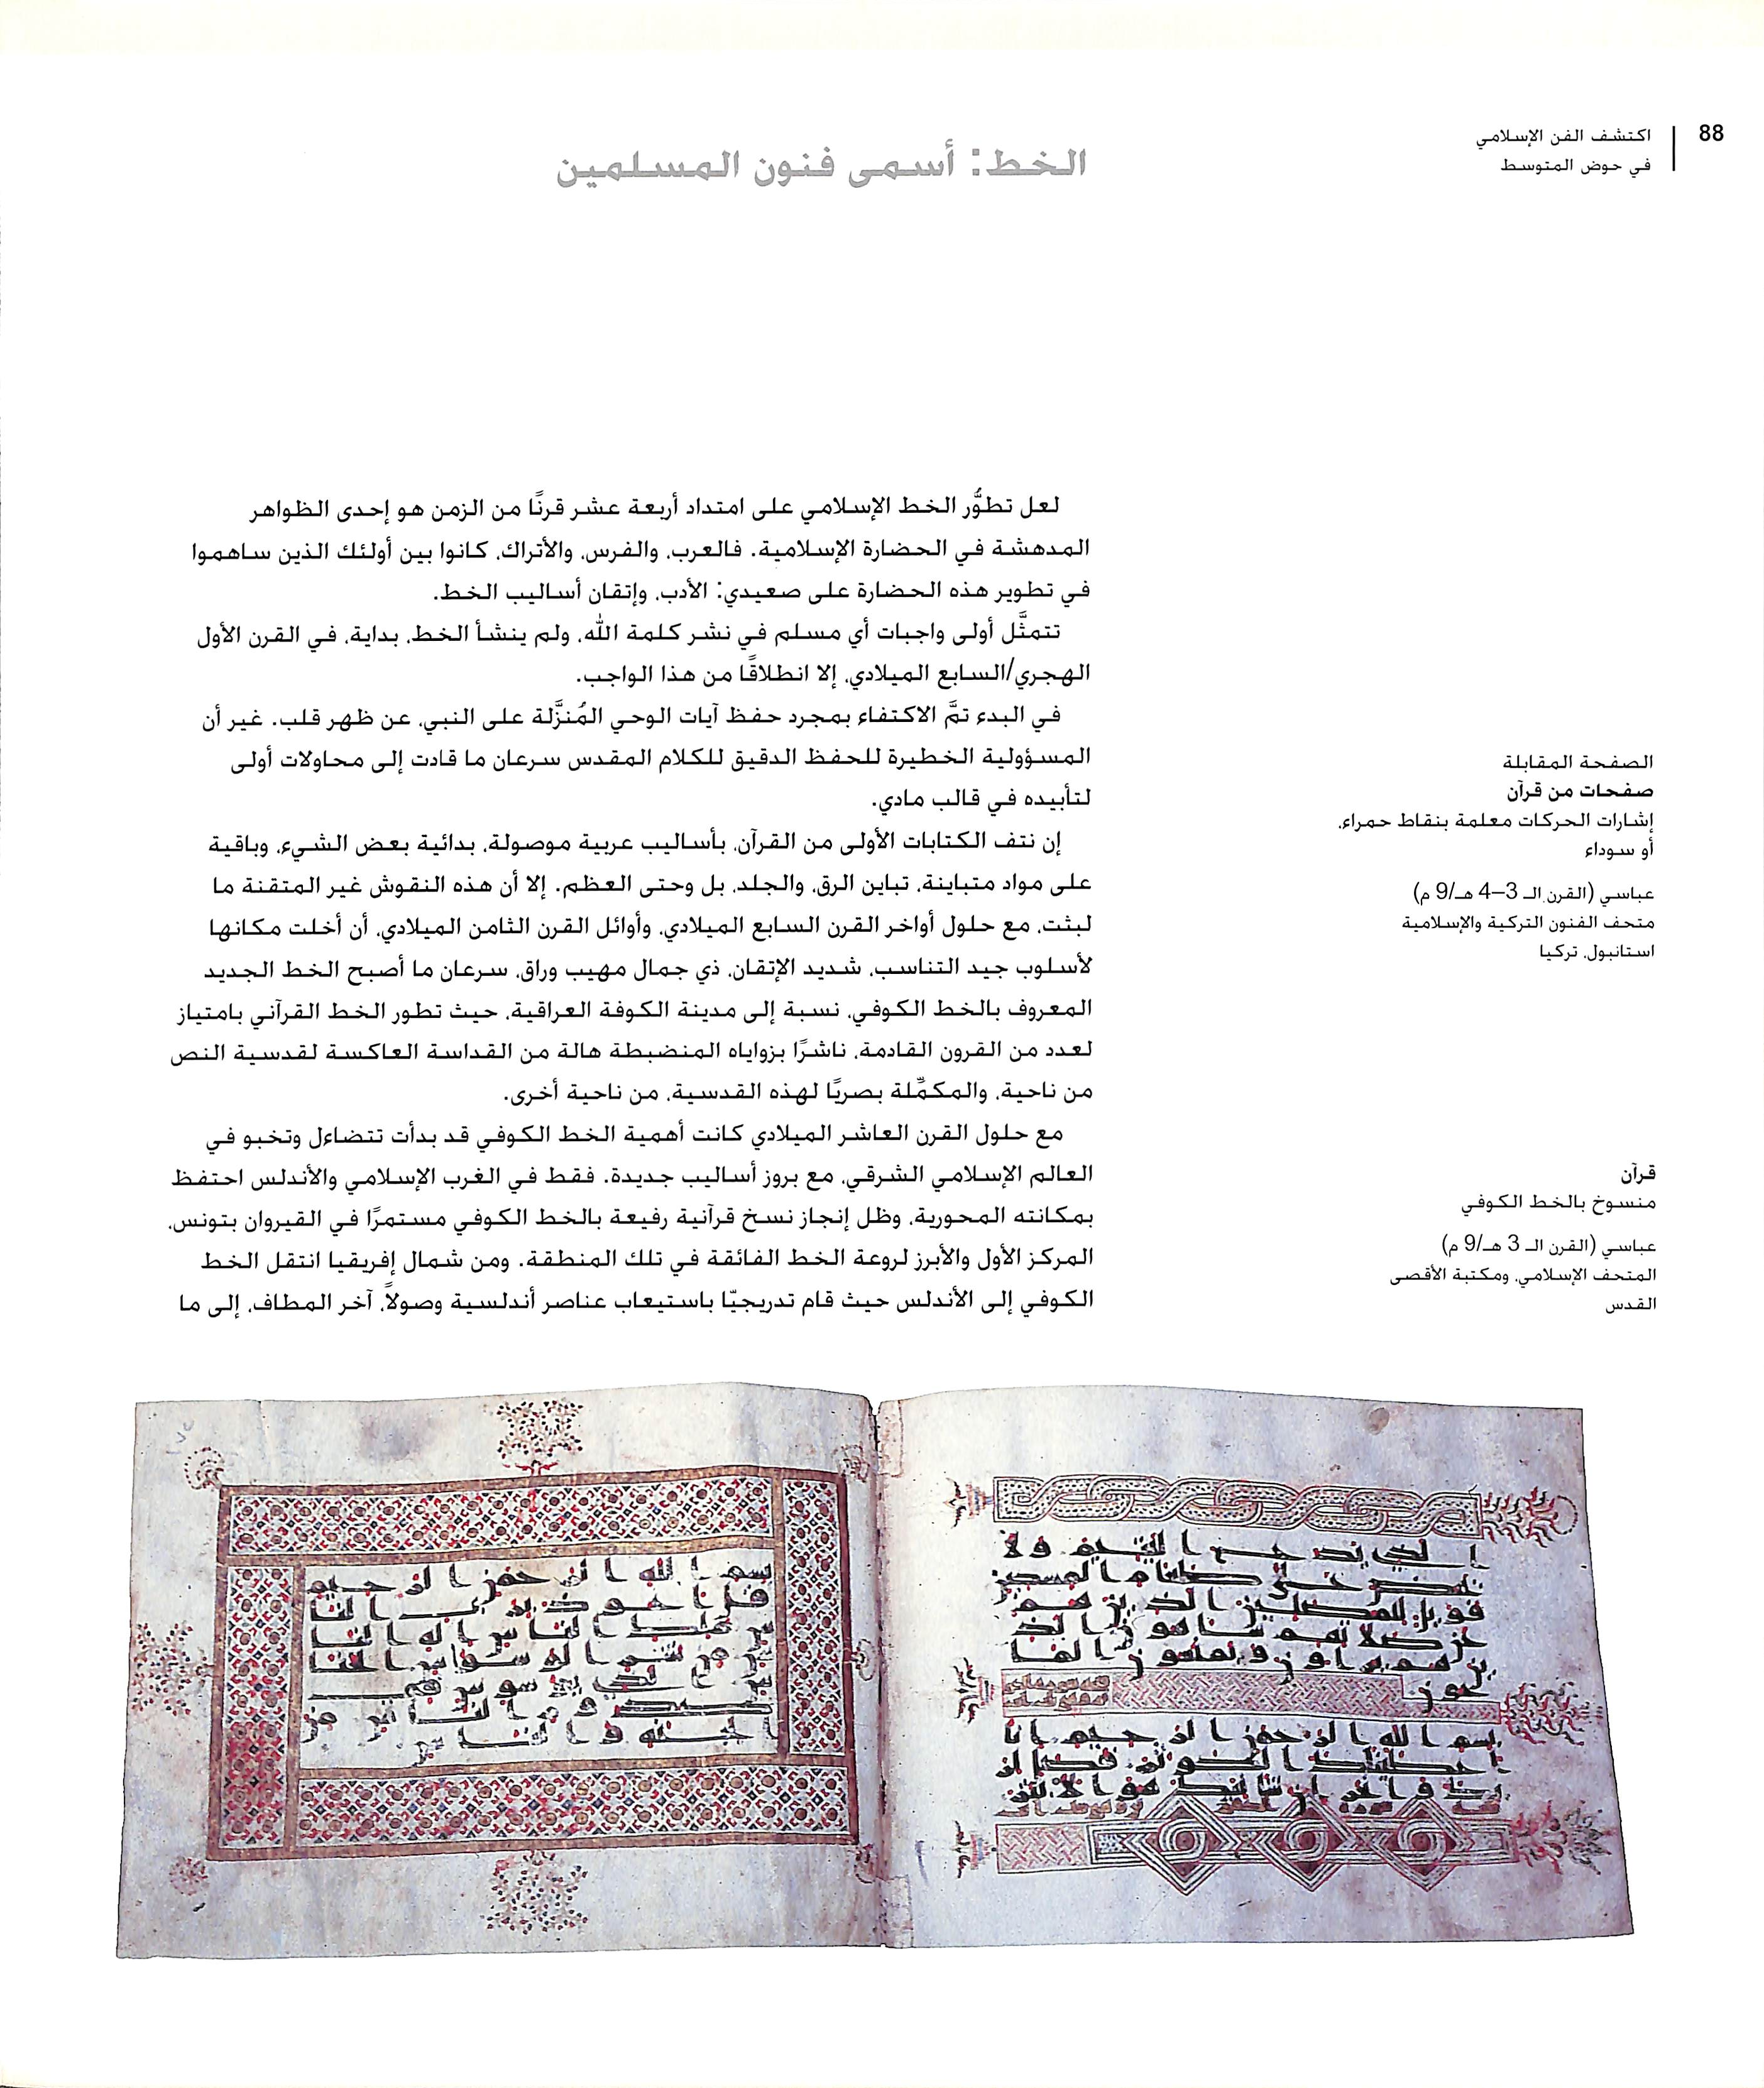 88
اكتشف الفن الإسلامي
في حوض المتوسط
الخط: أسمى فنون المسلمين
لعل تطوُّر الخط الإسلامي على امتداد أربعة عشر قرنًا من الزمن هو إحدى الظواهر
المدهشة في الحضارة الإسلامية. فالعرب، والفرس، والأتراك، كانوا بين أولئك الذين ساهموا
في تطوير هذه الحضارة على صعيدي: الأدب، وإتقان أساليب الخط.
تتمثَّل أولى واجبات أي مسلم في نشر كلمة الله، ولم ينشأ الخط، بداية، في القرن الأول
الهجري/السابع الميلادي، إلا انطلاقًا من هذا الواجب.
في البدء تمَّ الاكتفاء بمجرد حفظ آيات الوحي المُنزَّلة على النبي، عن ظهر قلب. غير أن
المسؤولية الخطيرة للحفظ الدقيق للكلام المقدس سرعان ما قادت إلى محاولات أولى
لتأبيده في قالب مادي.
إن نتف الكتابات الأولى من القرآن، بأساليب عربية موصولة، بدائية بعض الشيء، وباقية
على مواد متباينة، تباين الرق، والجلد، بل وحتى العظم. إلا أن هذه النقوش غير المتقنة ما
لبثت، مع حلول أواخر القرن السابع الميلادي، وأوائل القرن الثامن الميلادي، أن أخلت مكانها
لأسلوب جيد التناسب، شديد الإتقان، ذي جمال مهيب وراق، سرعان ما أصبح الخط الجديد
المعروف بالخط الكوفي، نسبة إلى مدينة الكوفة العراقية، حيث تطور الخط القرآني بامتياز
لعدد من القرون القادمة، ناشرًا بزواياه المنضبطة هالة من القداسة العاكسة لقدسية النص
من ناحية، والمكمِّلة بصريًا لهذه القدسية، من ناحية أخرى.
مع حلول القرن العاشر الميلادي كانت أهمية الخط الكوفي قد بدأت تتضاءل وتخبو في
العالم الإسلامي الشرقي، مع بروز أساليب جديدة. فقط في الغرب الإسلامي والأندلس احتفظ
بمكانته المحورية، وظل إنجاز نسخ قرآنية رفيعة بالخط الكوفي مستمرًا في القيروان بتونس،
المركز الأول والأبرز لروعة الخط الفائقة في تلك المنطقة. ومن شمال إفريقيا انتقل الخط
الكوفي إلى الأندلس حيث قام تدريجيّا باستيعاب عناصر أندلسية وصولاً، آخر المطاف، إلى ما
الصفحة المقابلة
صفحات من قرآن
إشارات الحركات معلمة بنقاط حمراء،
أو سوداء
عباسي (القرن الـ 3–4 هـ/9 م)
متحف الفنون التركية والإسلامية
استانبول، تركيا
قرآن
منسوخ بالخط الكوفي
عباسي (القرن الـ 3 هـ/9 م)
المتحف الإسلامي، ومكتبة الأقصى
القدس